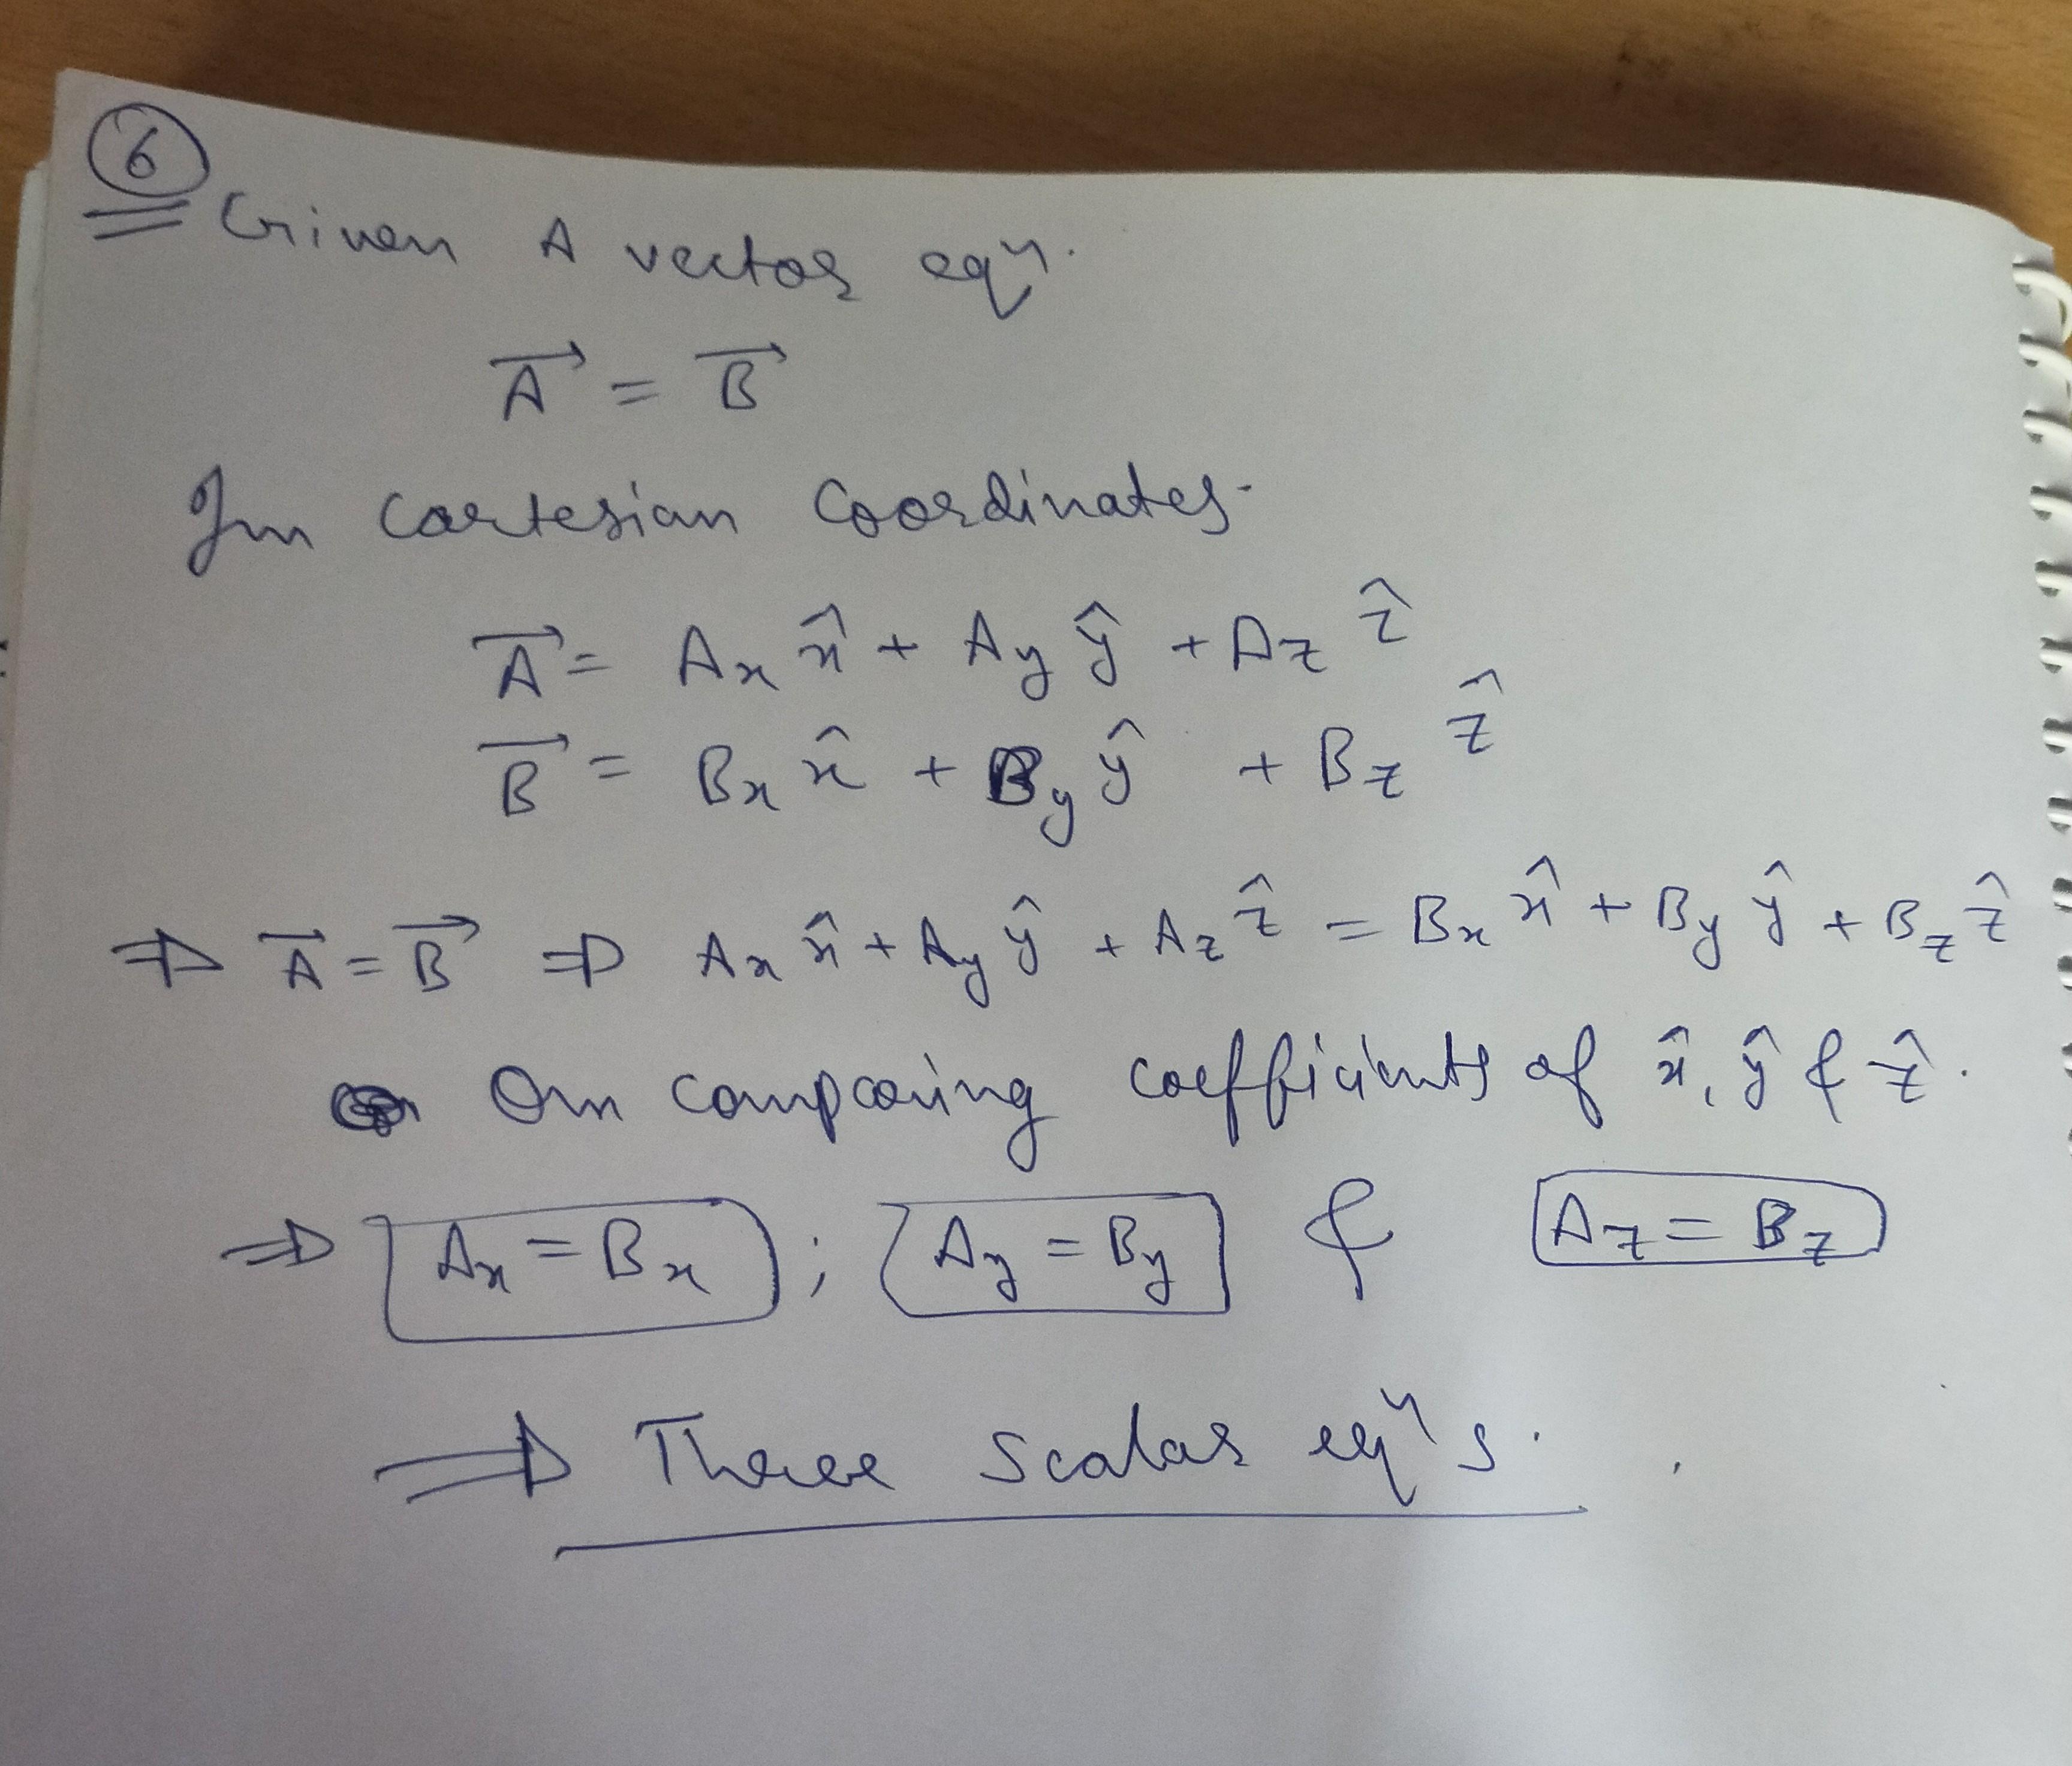 6
Given A vector eqⁿ.
A⃗ = B⃗
In Cartesian Coordinates-
A⃗ = Aₓ x̂ + A_y ŷ + A_z ẑ
B⃗ = Bₓ x̂ + B_y ŷ + B_z ẑ
⇒ A⃗ = B⃗ ⇒ Aₓ x̂ + A_y ŷ + A_z ẑ = Bₓ x̂ + B_y ŷ + B_z ẑ
On comparing coefficients of x̂, ŷ & ẑ.
⇒ Aₓ = Bₓ ; A_y = B_y & A_z = B_z
⇒ Three scalar eqⁿs.